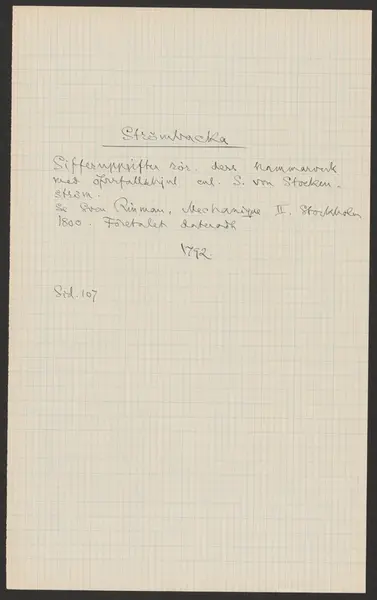 Strömbacka
Sifferuppgifter rör. ders hammarverk
med öfverfallshjul enl. S. von Stocken-
ström.
Se Sven Rinman, Mechanique II. Stockholm
1800. Företalet dateradt
1792.
Sid. 107